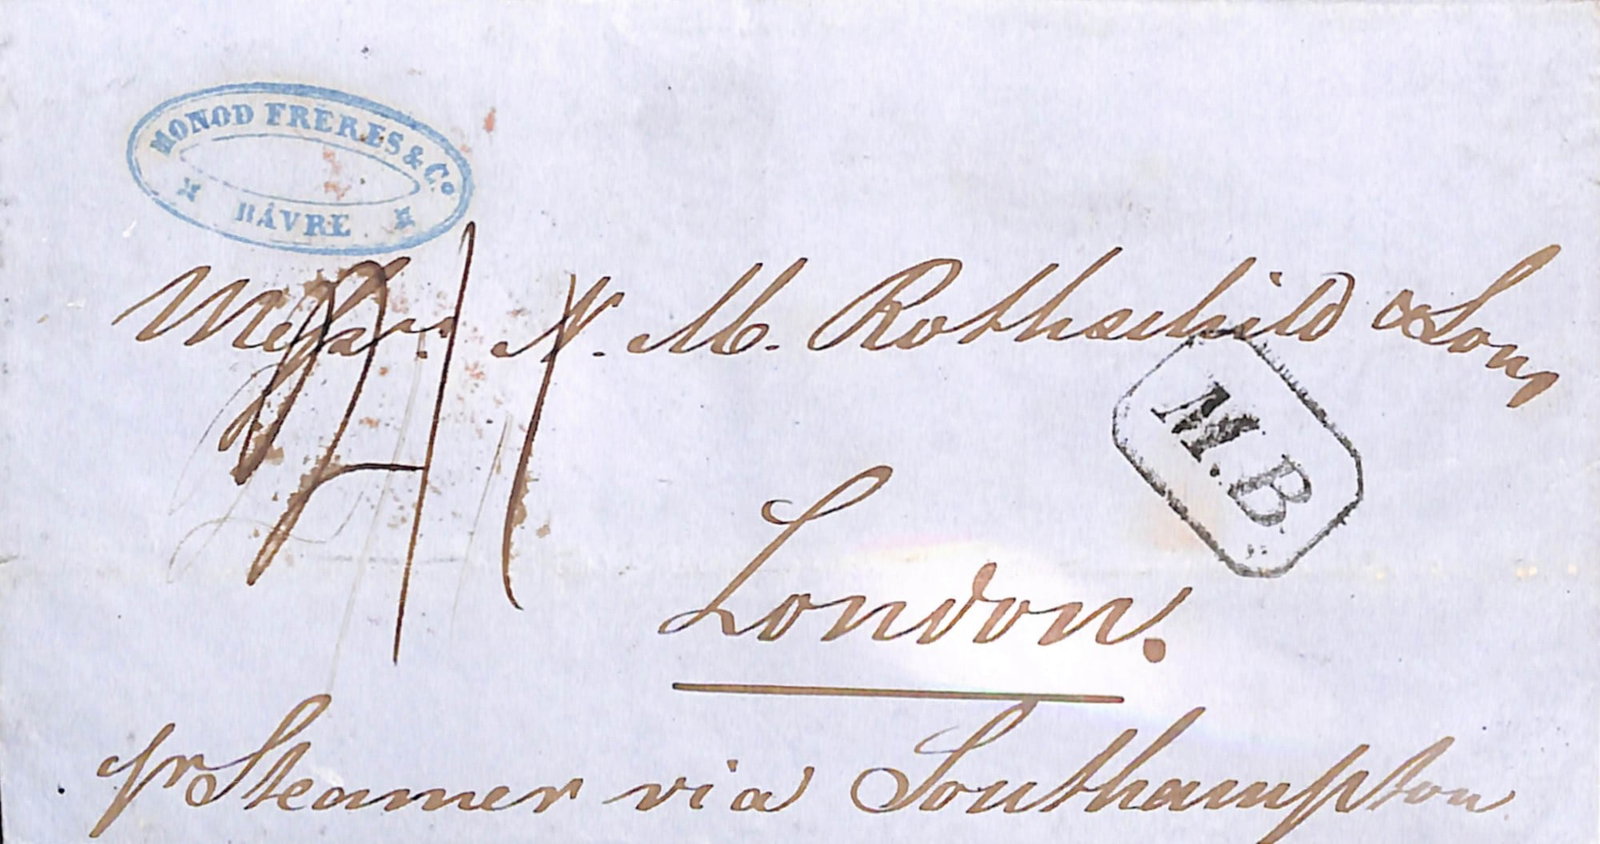 MONOD FRÈRES & Co.
HÂVRE
Messrs. N. M. Rothschild & Sons
M.B.
London.
pr Steamer via Southampton